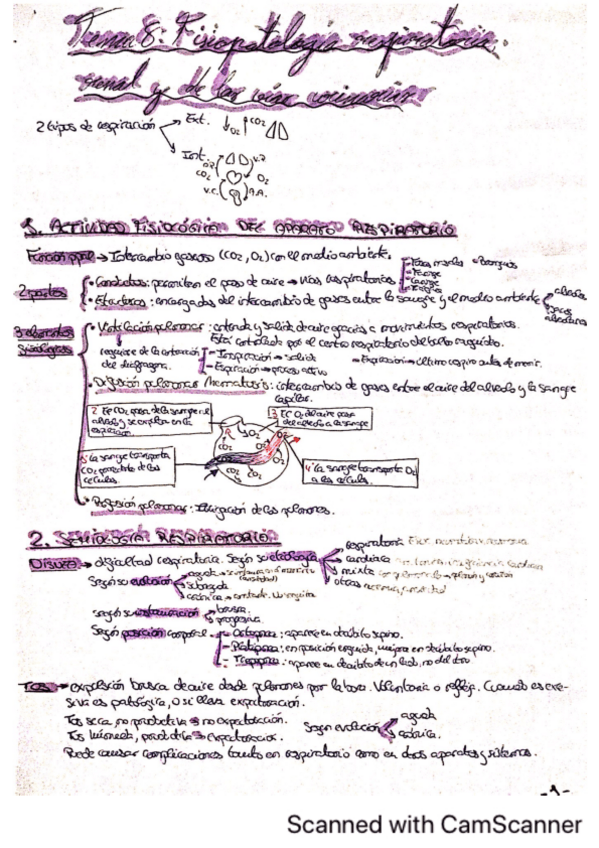 Tema 8: Fisiopatología respiratoria,
renal y de las vías urinarias.
2 tipos de respiración
Ext. ↓O2 ↑CO2
Int.
O2
CO2
V.P.
O2
V.C.
A.A.
1. ACTIVIDAD FISIOLÓGICA DEL APARATO RESPIRATORIO
Función ppal → Intercambio gaseoso (CO2, O2) con el medio ambiente.
2 partes
• Conductos: permiten el paso de aire → vías respiratorias
- Fosas nasales
- Faringe
- Laringe
- Tráquea
• Efectoras: encargadas del intercambio de gases entre la sangre y el medio ambiente
3 elementos fisiológicos
• Ventilación pulmonar: entrada y salida de aire gracias a movimientos respiratorios.
Está controlado por el centro respiratorio del bulbo raquídeo.
requiere de la
del diafragma.
- Inspiración → salida
- Espiración → proceso activo
- Expiración → último respiro antes de morir.
• Difusión pulmonar: intercambio de gases entre el aire del alveolo y la sangre
capilar.
2 El CO2 pasa de la sangre al
alveolo y se expulsa en la
espiración.
3 El O2 del aire pasa
del alveolo a la sangre
CO2
O2
1 La sangre transporta
CO2 procedente de las
células.
4 La sangre transporta O2
a las células.
• Perfusión pulmonar: Irrigación de los pulmones.
2. SEMIOLOGÍA RESPIRATORIA
Disnea → dificultad respiratoria. Según su etiología
respiratoria
cardiaca
mixta
otras
Según su evolución
aguda
subaguda
crónica → constante.
según su instauración
brusca.
progresiva.
Según posición corporal
- Ortopnea: aparece en decúbito supino.
- Platipnea: en posición erguida, mejora en decúbito supino.
- Trepopnea: aparece en decúbito de un lado, no del otro
Tos → expulsión brusca de aire desde pulmones por la boca. Voluntaria o refleja. Cuando es exce-
siva es patológica, o si lleva expectoración.
Tos seca, no productiva → no expectoración.
Tos húmeda, productiva → expectoración.
Según evolución
aguda
crónica.
Puede causar complicaciones tanto en respiratorio como en otros aparatos y sistemas.
-1-
Scanned with CamScanner